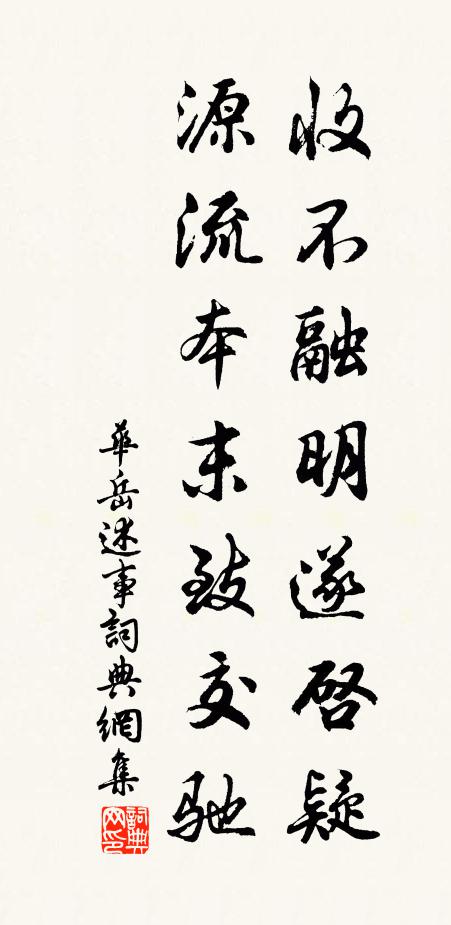 收不融明遂啓疑
源流本末致交馳
華岳述事詞典網集
詞典
网印